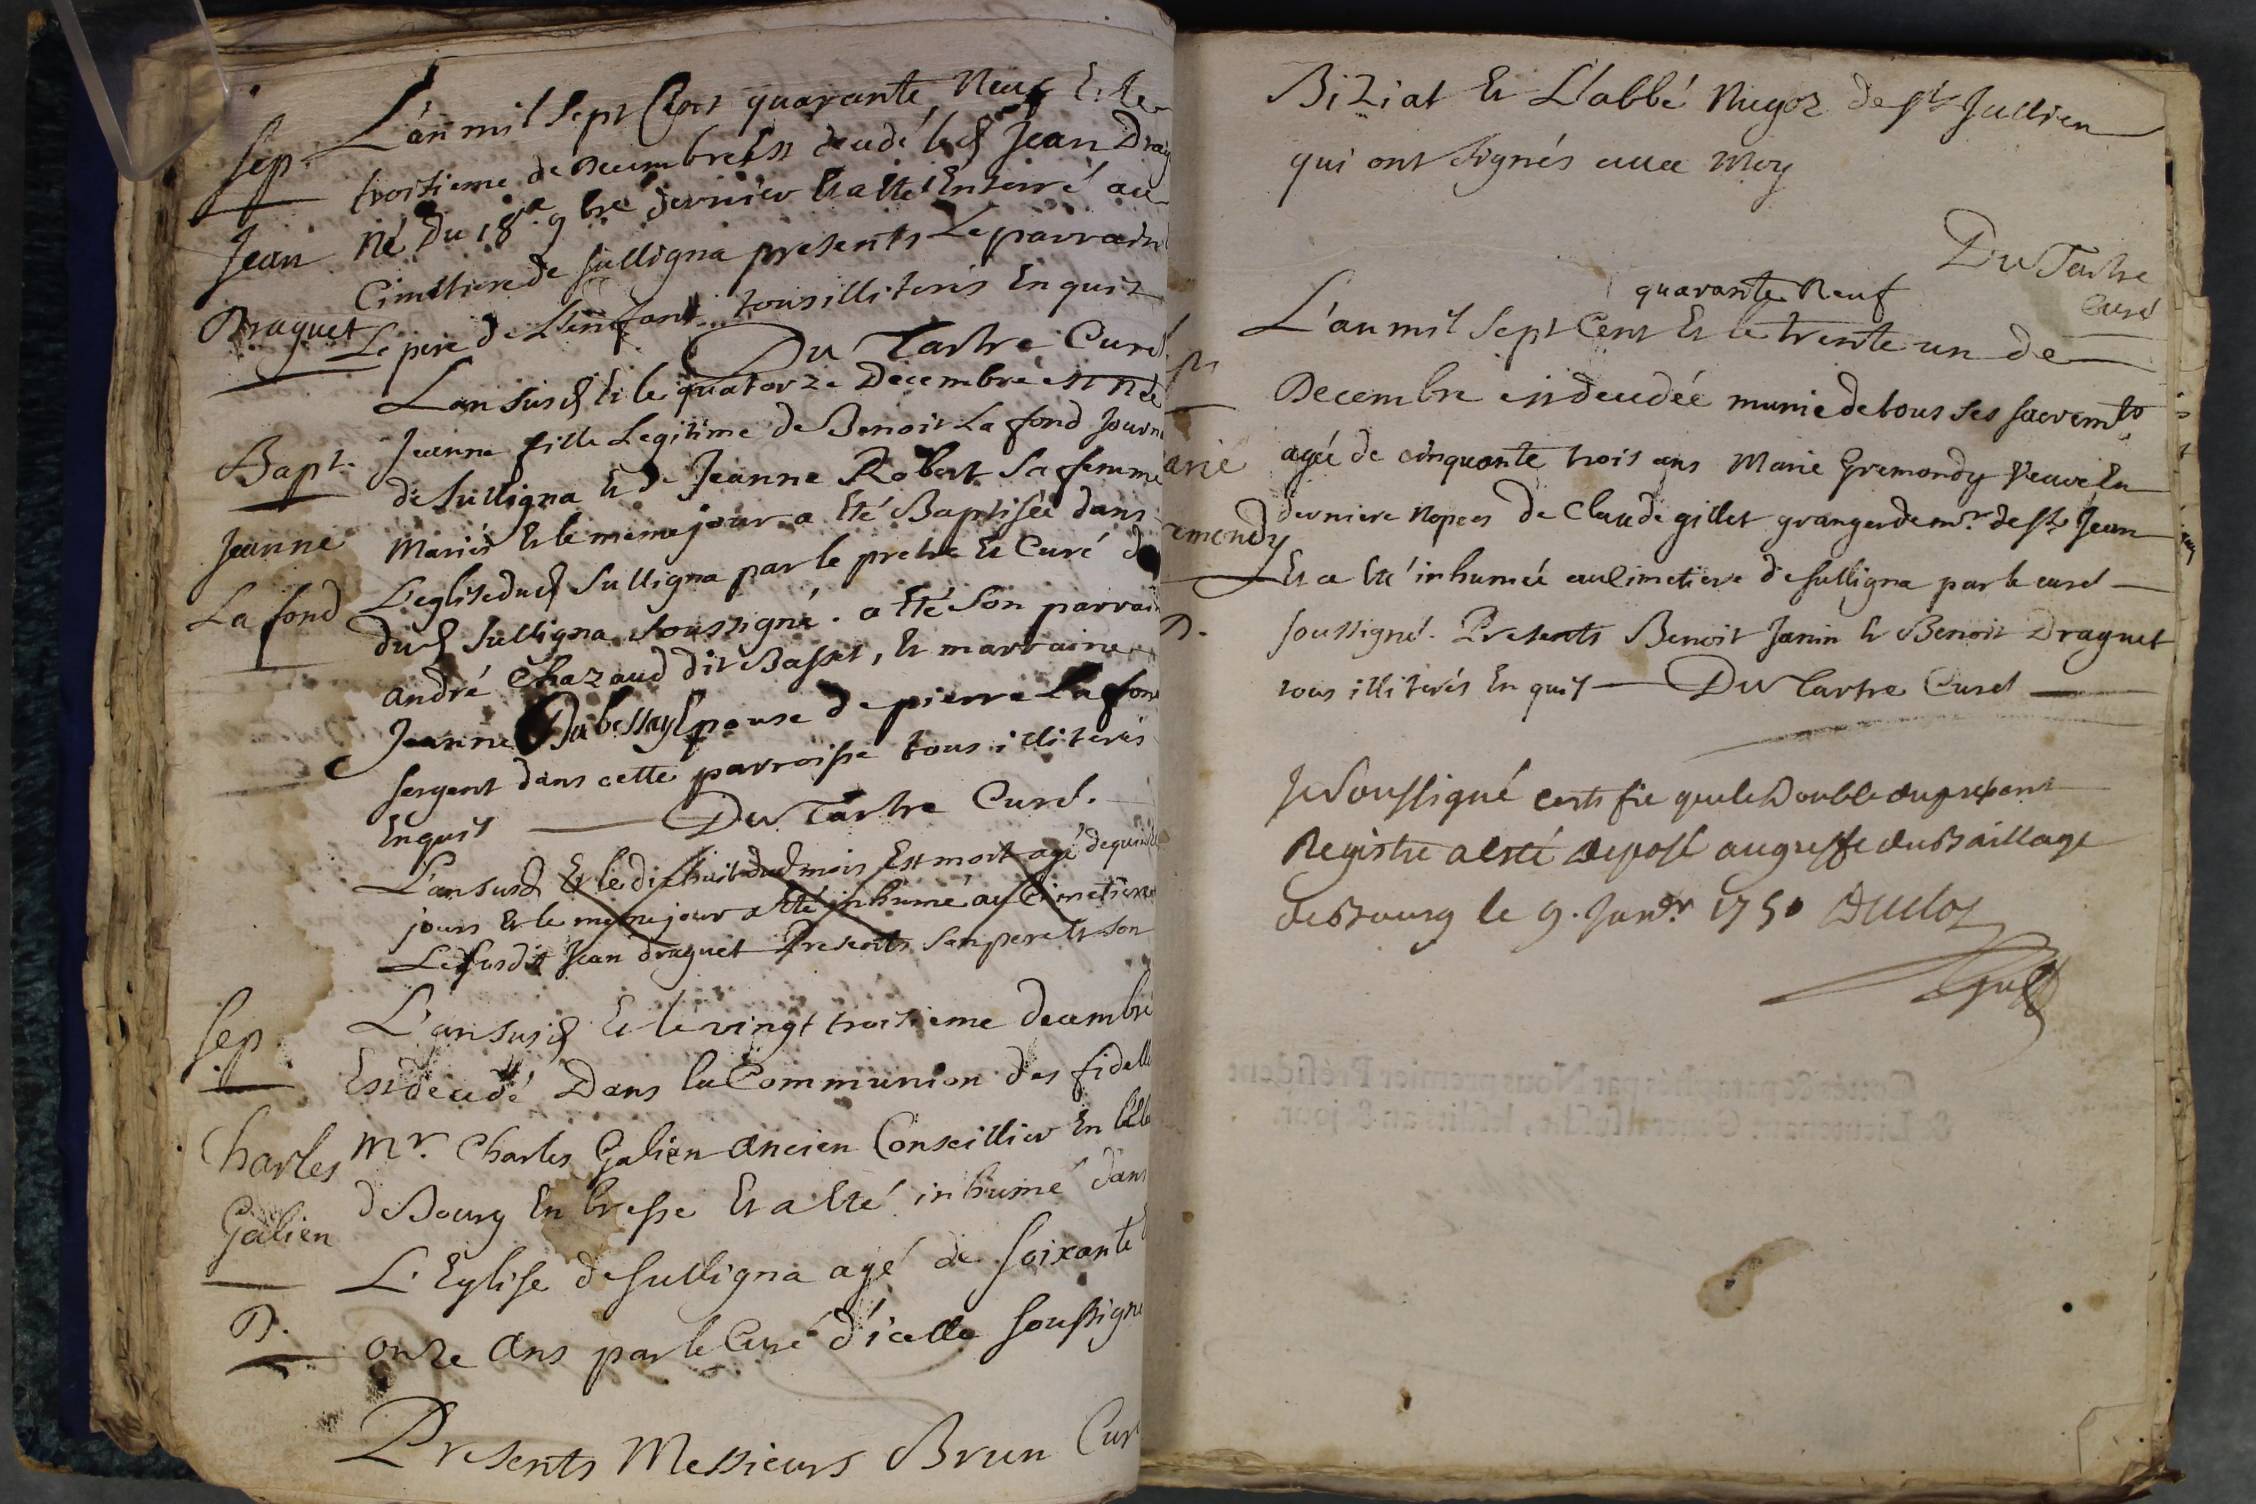 Sep.
Jean
Draguet
L'an mil sept Cent quarante Neuf Et le
troisieme de decembre Est decedé led Jean Drag
né du 18e 9bre dernier Et a eté Enterré au
Cimetiere de Sulligna presents Le parrain
Le pere de L'enfant tous illiterés Enquis
Du Tartre Curé
Bapt.
Jeanne
La fond
L'an susd Et le quatorze Decembre est née
Jeanne fille Legitime de Benoit La fond Journ
de Sulligna Et de Jeanne Robert Sa femme
Mariés Et le meme jour a Eté Baptisée dans
L'eglise dud Sulligna par le pretre Et Curé d
dud Sulligna soussigné. a Eté Son parrain
andré Chazaud dit Basset, Et marraine
Jeanne Epouse de pierre La fon
sergent dans cette parroisse tous illiterés
Enquis Du Tartre Curé.
L'an susd Et le dixhuit dud mois Est mort agé de quin
jours Et le meme jour a Eté inhumé au Cimetiere
Le susdit Jean draguet Presents Son pere Et son
Sep
Charles
Galien
D.
L'an susd Et le vingt troisieme decembre
Est decedé Dans la Communion des fidell
Mr. Charles Galien Ancien Conseillier En
de Bourg En bresse Et a Eté inhumé dans
L'Eglise de Sulligna agé de soixante
onze Ans par le Curé d'icelle soussigné
Presents Messieurs Brun Cur
Biziat Et L'abbé Nugoz de St Jullien
qui ont signés avec Moy
Du Tartre
Curé
arie
emondy
D.
quarante Neuf
L'an mil sept Cent Et le trente un de
Decembre est decedée munie de tous ses sacremts
agée de cinquante trois ans Marie Gremondy Veuve En
derniere Nopces de Claude gillet granger de mr. de St Jean
Et a Eté inhumée au Cimetiere de Sulligna par le curé
soussigné. Presents Benoit Janin Et Benoit Draguet
tous illiterés Enquis Du Tartre Curé
Je Soussigné certifie que le Double du present
Registre a esté deposé au greffe du Baillage
de Bourg le 9. Janvr 1750 Duclos